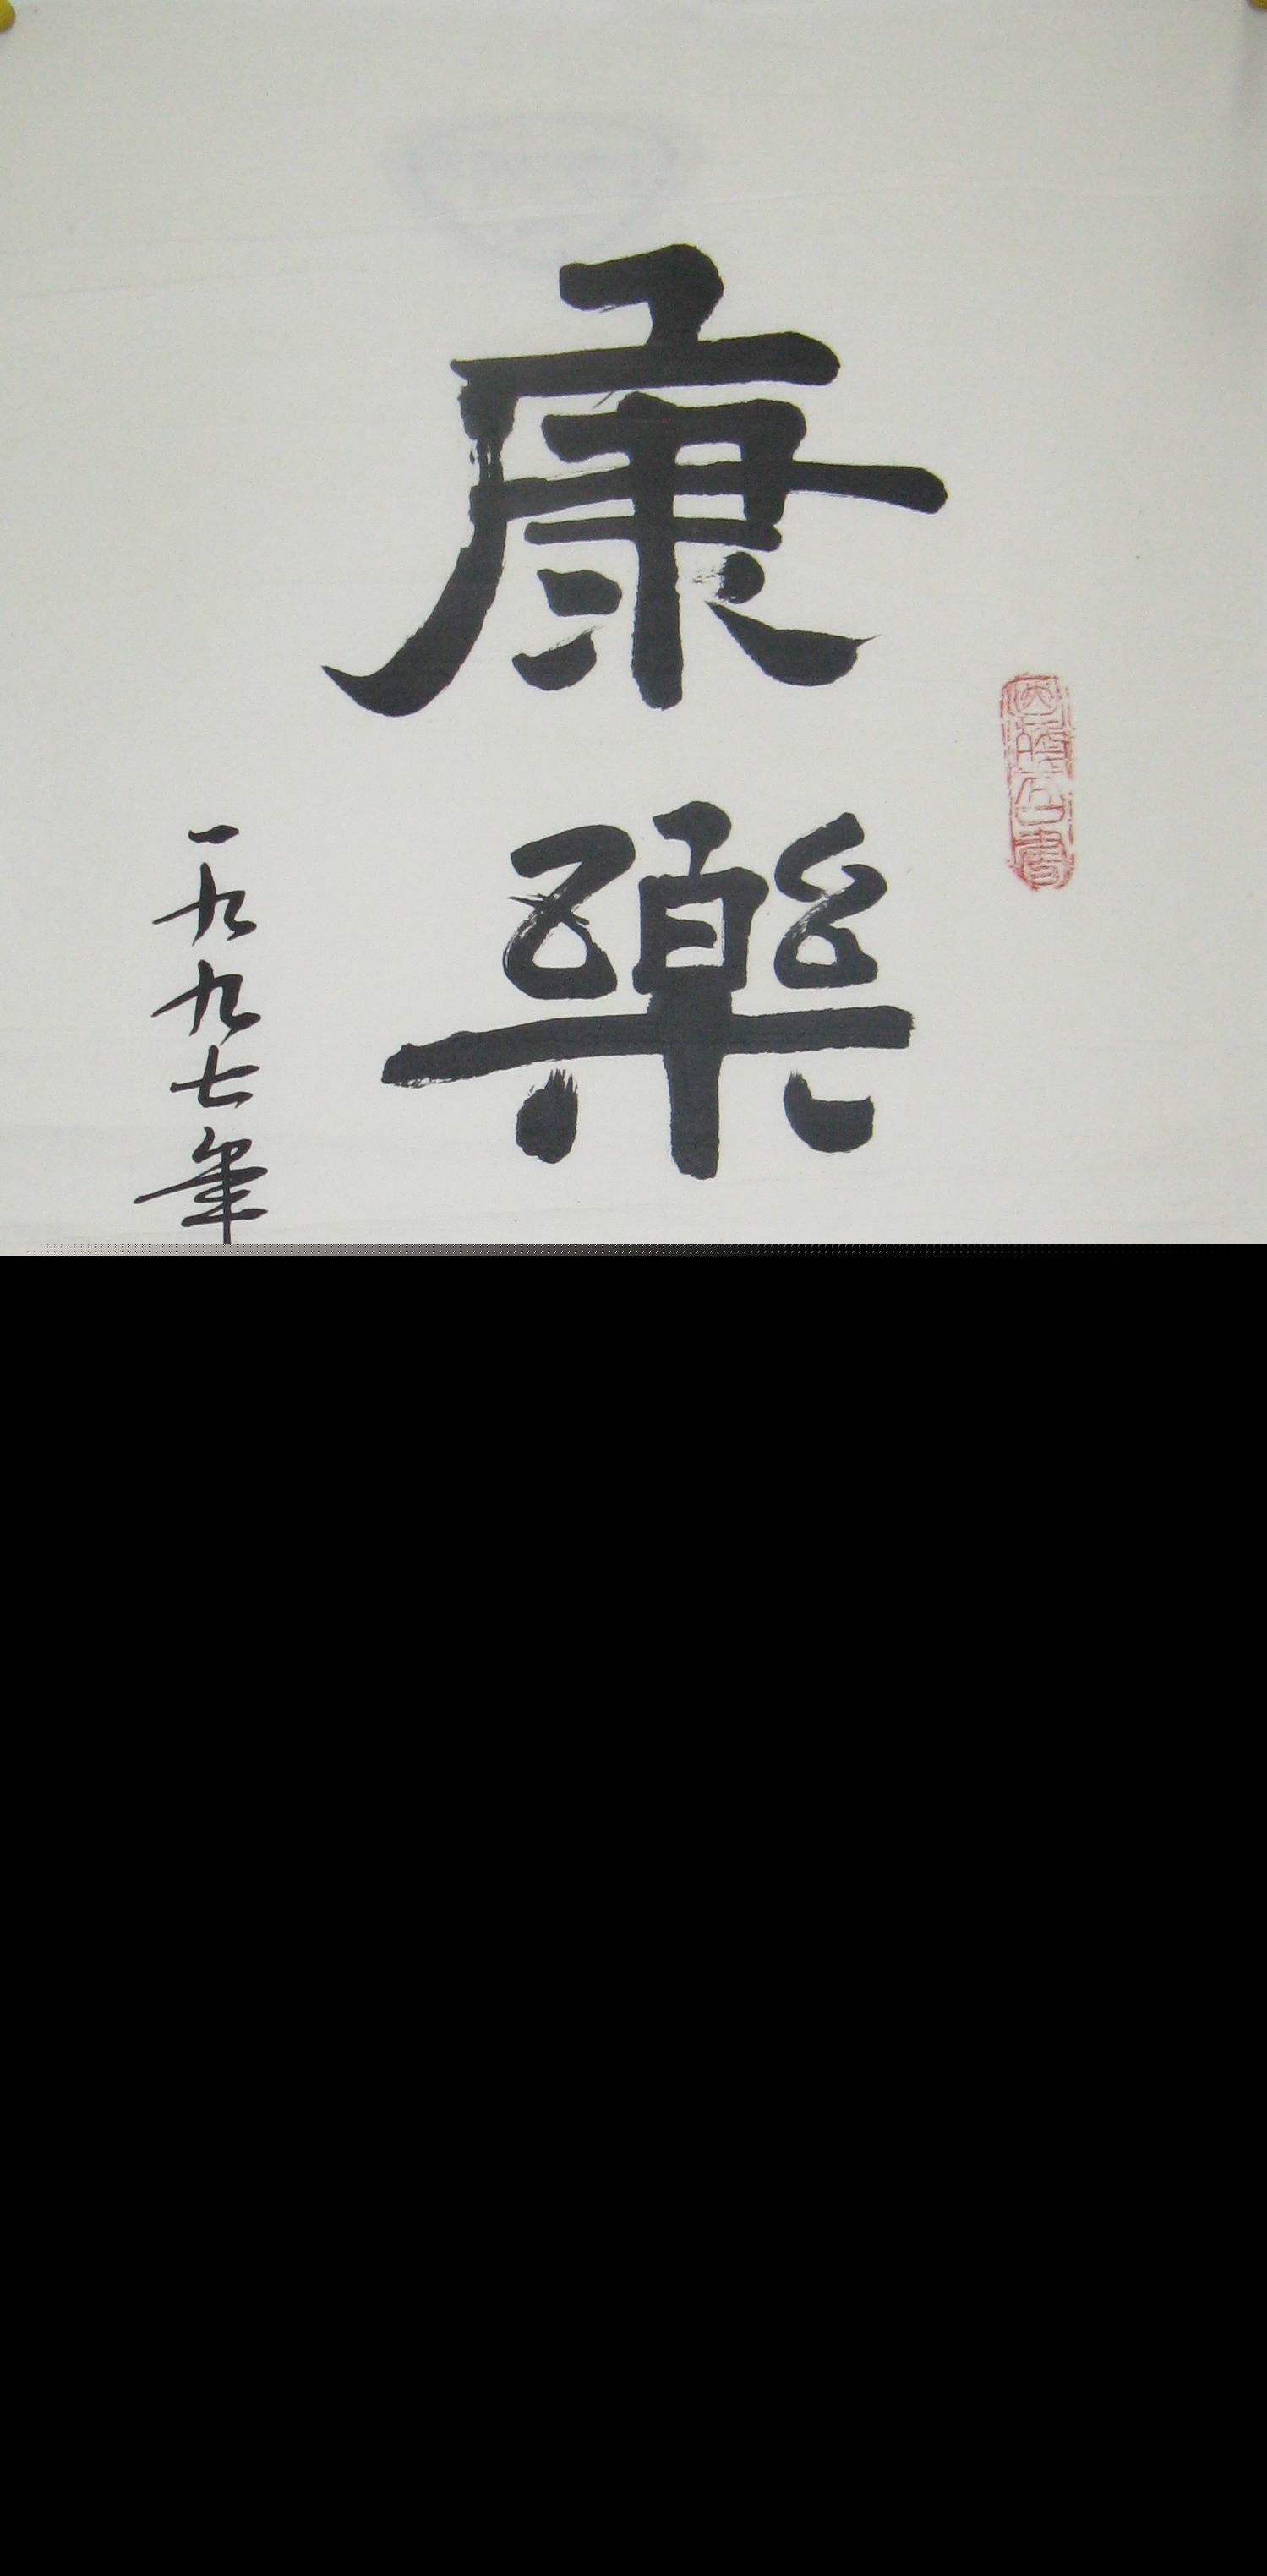 康樂
一九九七年